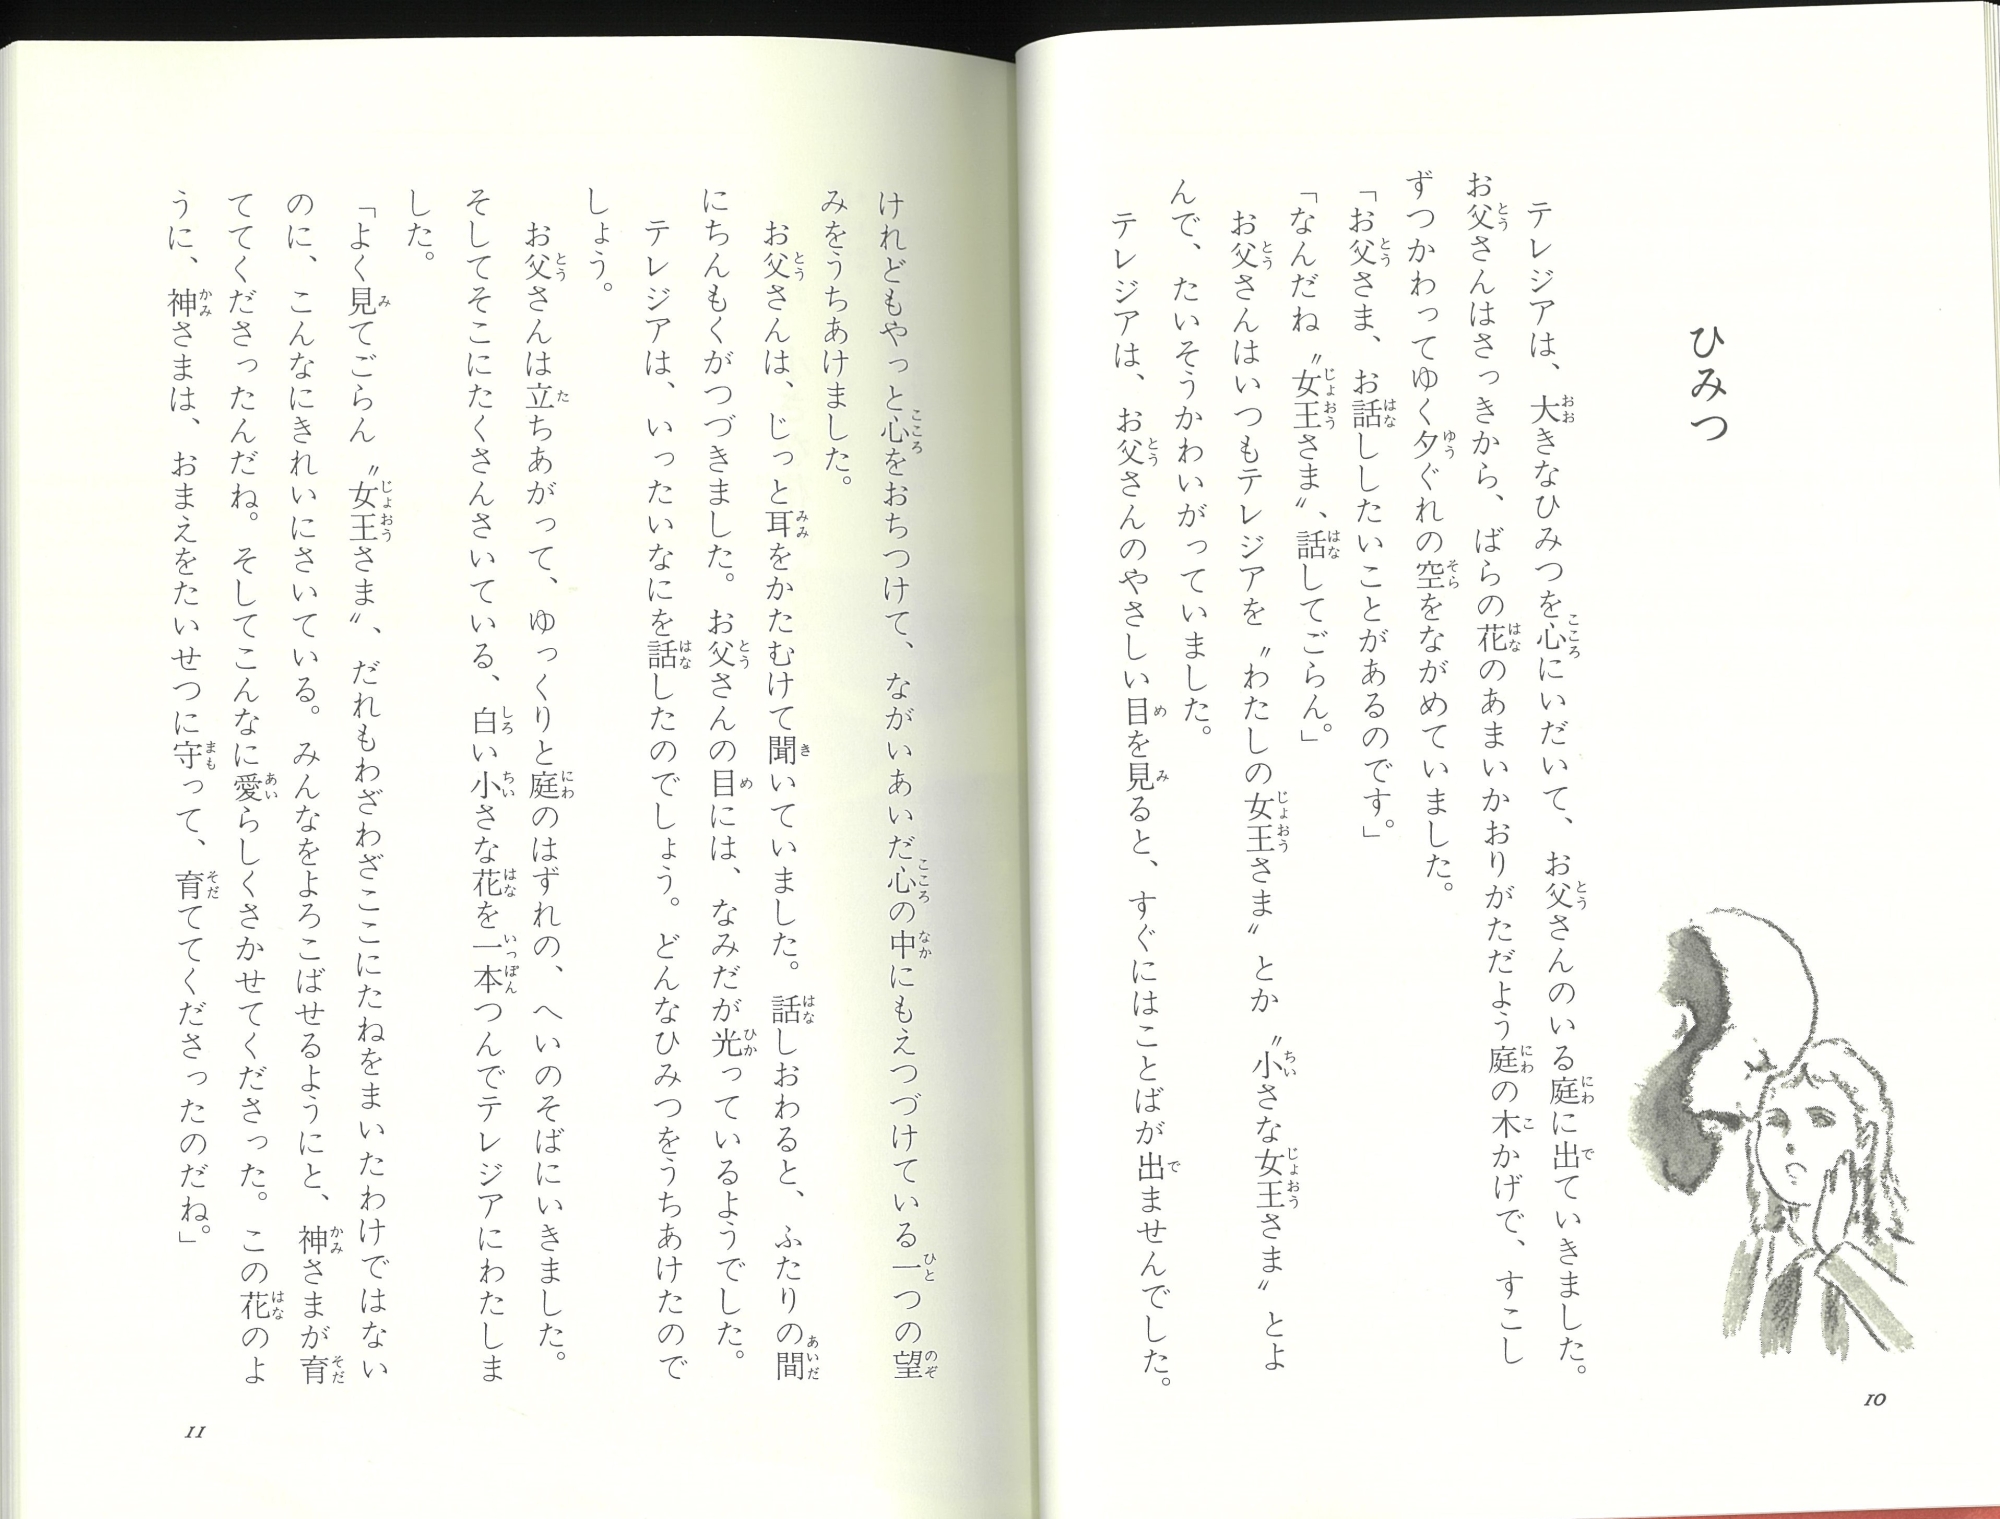 ひみつ
テレジアは、大きなひみつを心にいだいて、お父さんのいる庭に出ていきました。
お父さんはさっきから、ばらの花のあまいかおりがただよう庭の木かげで、すこし
ずつかわってゆく夕ぐれの空をながめていました。
「お父さま、お話ししたいことがあるのです。」
「なんだね〝女王さま〟、話してごらん。」
お父さんはいつもテレジアを〝わたしの女王さま〟とか〝小さな女王さま〟とよ
んで、たいそうかわいがっていました。
テレジアは、お父さんのやさしい目を見ると、すぐにはことばが出ませんでした。
10
けれどもやっと心をおちつけて、ながいあいだ心の中にもえつづけている一つの望
みをうちあけました。
お父さんは、じっと耳をかたむけて聞いていました。話しおわると、ふたりの間
にちんもくがつづきました。お父さんの目には、なみだが光っているようでした。
テレジアは、いったいなにを話したのでしょう。どんなひみつをうちあけたので
しょう。
お父さんは立ちあがって、ゆっくりと庭のはずれの、へいのそばにいきました。
そしてそこにたくさんさいている、白い小さな花を一本つんでテレジアにわたしま
した。
「よく見てごらん〝女王さま〟、だれもわざわざここにたねをまいたわけではない
のに、こんなにきれいにさいている。みんなをよろこばせるようにと、神さまが育
ててくださったんだね。そしてこんなに愛らしくさかせてくださった。この花のよ
うに、神さまは、おまえをたいせつに守って、育ててくださったのだね。」
11